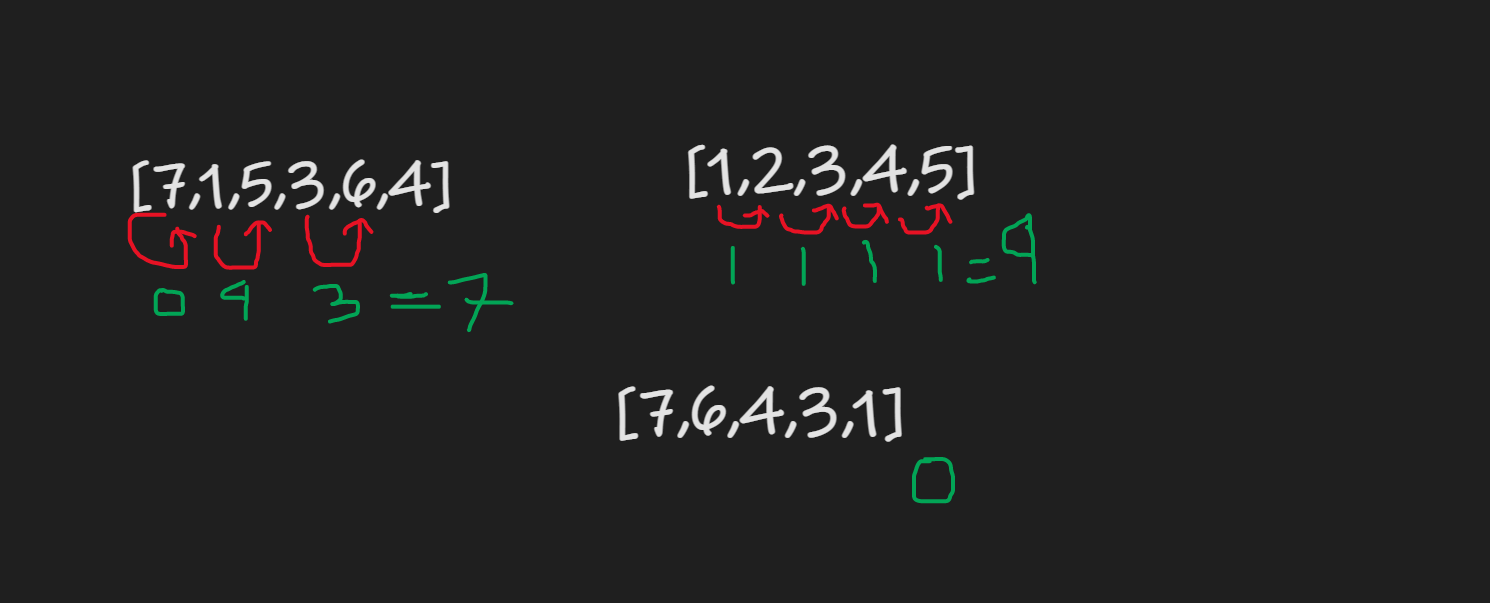 [7,1,5,3,6,4]
0 4 3 = 7
[1,2,3,4,5]
1 1 1 1 = 4
[7,6,4,3,1]
0